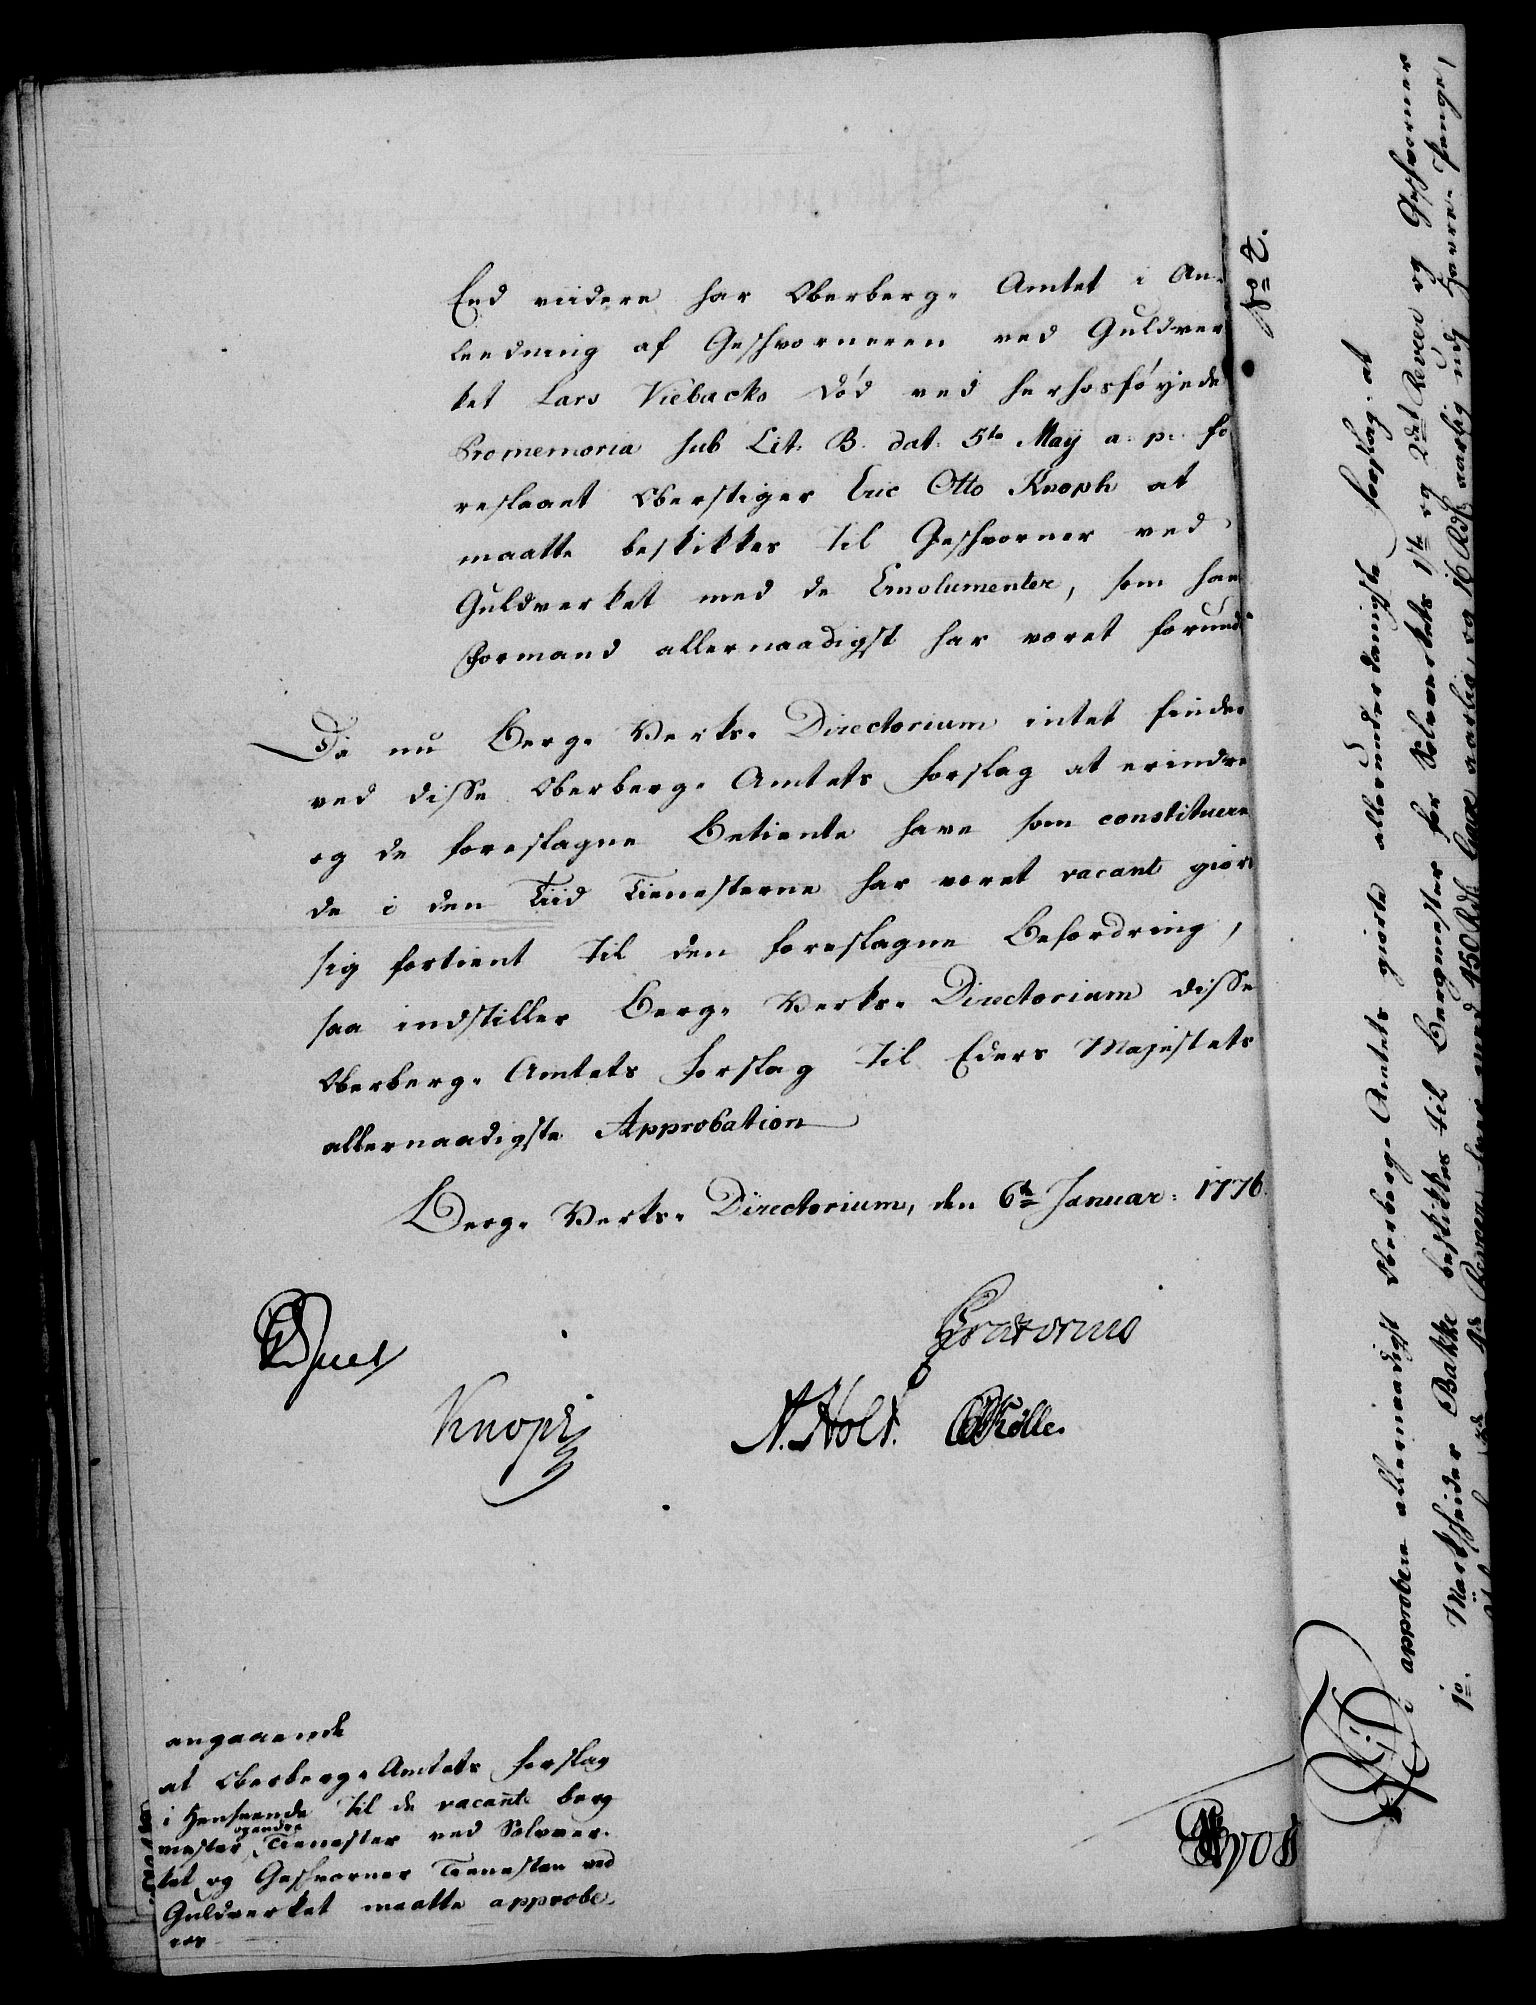 End viidere har Oberberg- Amtet i An-
leedning af Geschworneren ved Guldver
ket Lars Viebacks Død ved herhosføyede
Promemoria sub Lit. B. dat: 5te Maÿ a: p: fo
reslaaet Oberstiger Eric Otto Knoph at
maatte beskikkes til Geschworner ved
Guldverket med de Emolumenter, som han
Formand allernaadigst har været forundt
Da nu Berg- Verks- Directorium intet finder
ved disse Oberberg- Amtets Forslag at erindre
og de foreslagne Betiente have som constituere
de i den Tiid Tienesterne har været vacant giort
sig fortient til den foreslagne Befordring,
saa indstiller Berg- Verks- Directorium disse
Oberberg- Amtets Forslag til Eders Majestets
allernaadigste Approbation
Berg- Verks- Directorium, den 6te Januar: 1776.
Juel
Prætorius
Knoph
N. Holt.
Rølle.
angaaende
at Oberberg- Amtets Forslag
i Henseende til de vacante Berg
mester og andre Tienester ved Sølvver-
ket og Geschworner Tienesten ved
Guldverket maatte approbe-
res
No 2.
Vi approbere allernaadigst Oberberg- Amtets giorte allerunderdanigste Forslag, at
1o. Markscheider Bakke beskikkes til Bergmester for Sølvverkets 1ste og 2det Reveer og Geschworner
med 450 Rdlr Gage aarlig, og 16 Rdlr aarlig udj Havre- Penge,